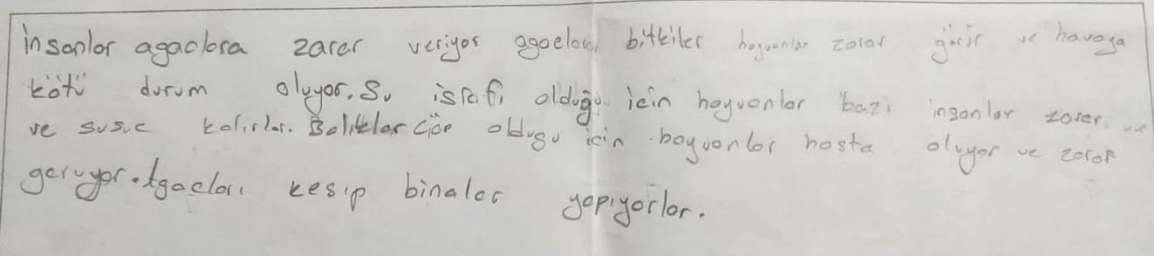 insanlar agaclara zarar veriyor agaclara bitkiler hayvanlar zarar görür ve havaya
kötü durum oluyor. Su israfı olduğu icin hayvanlar bazı insanlar zarar ve
ve susuc kalırlar. Balıklar Cöp oldugu icin hayvanlar hasta oluyor ve zarar
geruyor. Agacları kesip binalar yapıyorlar.